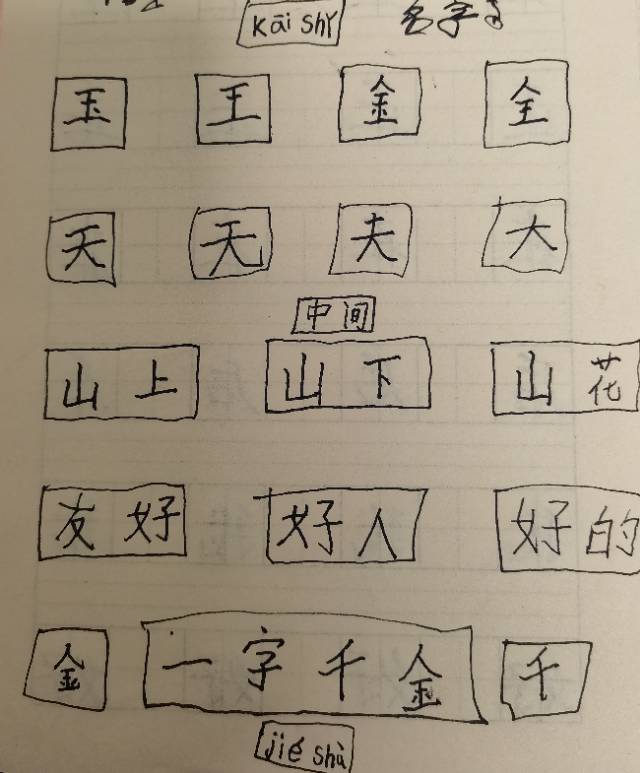 kāi shǐ 名字
玉 王 金 全
天 无 夫 大
中间
山上 山下 山花
友好 好人 好的
金 一字千金 千
jié shù